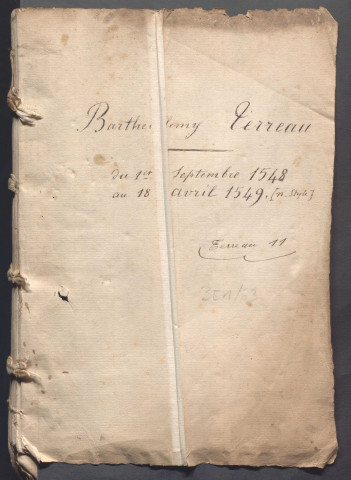 Barthelemy Terreau
du 1er Septembre 1548
au 18 avril 1549. [n. Style]
Terreau 11